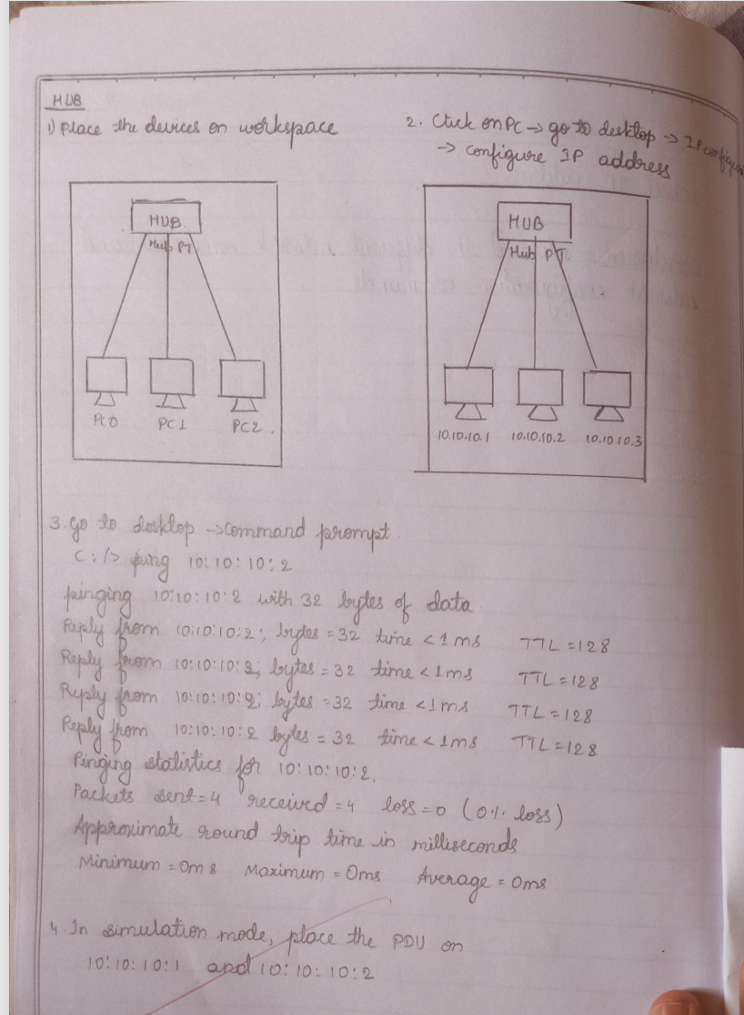 HUB
1) Place the devices on workspace
2. Click on PC → go to desktop → IP configura
→ configure IP address
HUB
Hub PT
PC0 PC1 PC2.
HUB
Hub PT
10.10.10.1 10.10.10.2 10.10.10.3
3. Go to desktop → command prompt.
C:/> ping 10:10:10:2
pinging 10:10:10:2 with 32 bytes of data
Reply from 10:10:10:2; bytes = 32 time < 1ms TTL = 128
Reply from 10:10:10:2; bytes = 32 time < 1ms TTL = 128
Reply from 10:10:10:2; bytes = 32 time < 1ms TTL = 128
Reply from 10:10:10:2 bytes = 32 time < 1ms TTL = 128
Pinging statistics for 10:10:10:2.
Packets sent = 4 received = 4 loss = 0 (0% loss)
Approximate round trip time in milliseconds
Minimum = 0ms Maximum = 0ms Average = 0ms
4. In simulation mode, place the PDU on
10:10:10:1 and 10:10:10:2